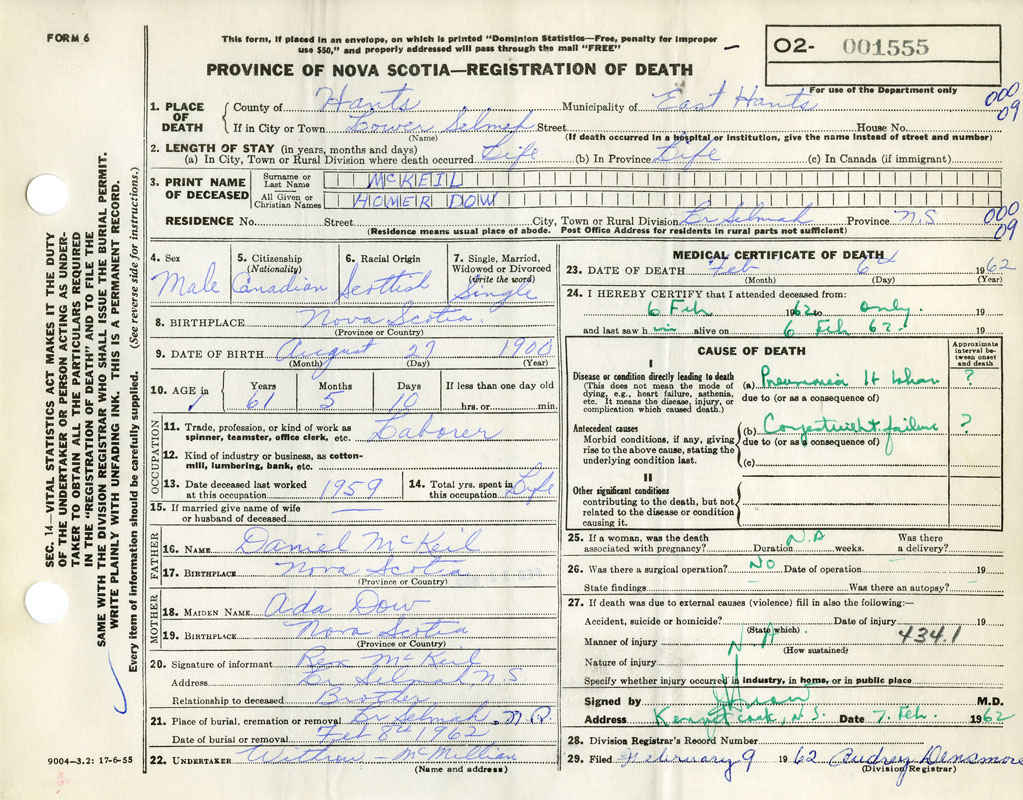 FORM 6
This form, if placed in an envelope, on which is printed "Dominion Statistics—Free, penalty for improper
use $50," and properly addressed will pass through the mail "FREE"
O2- 001555
For use of the Department only
PROVINCE OF NOVA SCOTIA—REGISTRATION OF DEATH
SEC. 14—VITAL STATISTICS ACT MAKES IT THE DUTY
OF THE UNDERTAKER OR PERSON ACTING AS UNDER-
TAKER TO OBTAIN ALL THE PARTICULARS REQUIRED
IN THE "REGISTRATION OF DEATH" AND TO FILE THE
SAME WITH THE DIVISION REGISTRAR WHO SHALL ISSUE THE BURIAL PERMIT.
WRITE PLAINLY WITH UNFADING INK. THIS IS A PERMANENT RECORD.
Every item of information should be carefully supplied. (See reverse side for instructions.)
1. PLACE OF DEATH County of Hants Municipality of East Hants 000 09
If in City or Town Lower Selmah Street House No.
(Name) (If death occurred in a hospital or institution, give the name instead of street and number)
2. LENGTH OF STAY (in years, months and days)
(a) In City, Town or Rural Division where death occurred Life (b) In Province Life (c) In Canada (if immigrant)
3. PRINT NAME OF DECEASED Surname or Last Name McKEIL
All Given or Christian Names HOMER DOW
RESIDENCE No. Street City, Town or Rural Division Lr Selmah Province N.S 000 09
(Residence means usual place of abode. Post Office Address for residents in rural parts not sufficient)
4. Sex 5. Citizenship (Nationality) 6. Racial Origin 7. Single, Married, Widowed or Divorced (Write the word)
Male Canadian Scottish Single
8. BIRTHPLACE Nova Scotia
(Province or Country)
9. DATE OF BIRTH August 27 1900
(Month) (Day) (Year)
10. AGE in Years Months Days If less than one day old
61 5 10 hrs. or min.
OCCUPATION
11. Trade, profession, or kind of work as spinner, teamster, office clerk, etc. Laborer
12. Kind of industry or business, as cotton-mill, lumbering, bank, etc.
13. Date deceased last worked at this occupation 1959 14. Total yrs. spent in this occupation Life
15. If married give name of wife or husband of deceased
FATHER
16. NAME Daniel McKeil
17. BIRTHPLACE Nova Scotia
(Province or Country)
MOTHER
18. MAIDEN NAME Ada Dow
19. BIRTHPLACE Nova Scotia
(Province or Country)
20. Signature of informant Rex McKeil
Address Lr Selmah N.S
Relationship to deceased Brother
21. Place of burial, cremation or removal Lr Selmah
Date of burial or removal Feb 8th 1962
22. UNDERTAKER Withrow - McMillian
(Name and address)
9004—3.2: 17-6-55
MEDICAL CERTIFICATE OF DEATH
23. DATE OF DEATH Feb 6th 1962
(Month) (Day) (Year)
24. I HEREBY CERTIFY that I attended deceased from:
6 Feb 1962 to only 19
and last saw him alive on 6 Feb 62 19
CAUSE OF DEATH
Approximate interval between onset and death
I
Disease or condition directly leading to death
(This does not mean the mode of dying, e.g., heart failure, asthenia, etc. It means the disease, injury, or complication which caused death.)
(a) Pneumonia ?
due to (or as a consequence of)
Antecedent causes
Morbid conditions, if any, giving rise to the above cause, stating the underlying condition last.
(b) failure ?
due to (or as a consequence of)
(c)
II
Other significant conditions
contributing to the death, but not related to the disease or condition causing it.
25. If a woman, was the death associated with pregnancy? N.A Duration weeks. Was there a delivery?
26. Was there a surgical operation? NO Date of operation 19
State findings Was there an autopsy?
27. If death was due to external causes (violence) fill in also the following:—
Accident, suicide or homicide? Date of injury 19
(State which)
Manner of injury N.A 434.1
(How sustained)
Nature of injury
Specify whether injury occurred in industry, in home, or in public place
Signed by M.D.
Address Kennetcook, N.S. Date 7. Feb. 1962
28. Division Registrar's Record Number
29. Filed February 9 1962 Audrey Densmore
(Division Registrar)